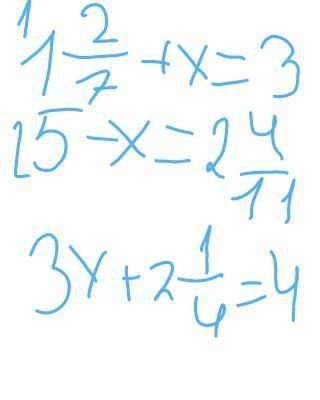 1
1 2/7 + x = 3
15 - x = 2 4/11
3y + 2 1/4 = 4